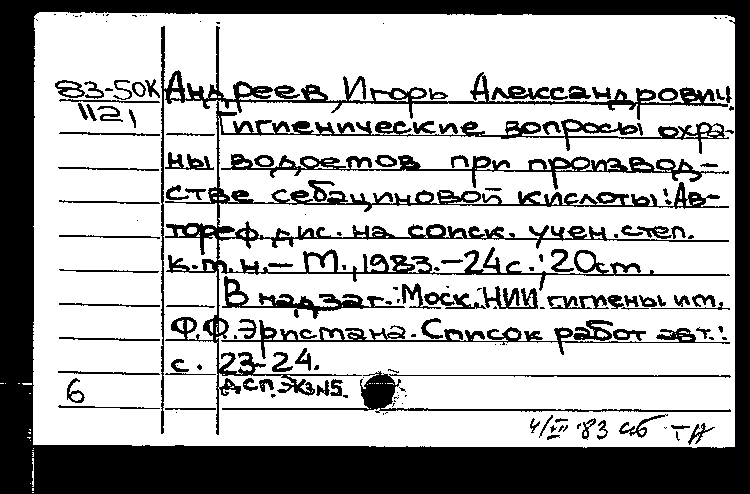 83-50К Андреев, Игорь Александрович
1121
Гигиенические вопросы охра-
ны водоемов при производ-
стве себациновой кислоты: Ав-
тореф. дис. на соиск. учен. степ.
к.т.н. — М., 1983. — 24 с.; 20 см.
В надзаг.: Моск. НИИ гигиены им.
Ф.Ф. Эрисмана. Список работ авт.:
с. 23-24.
6 ДСП. Экз N5.
4/III 83